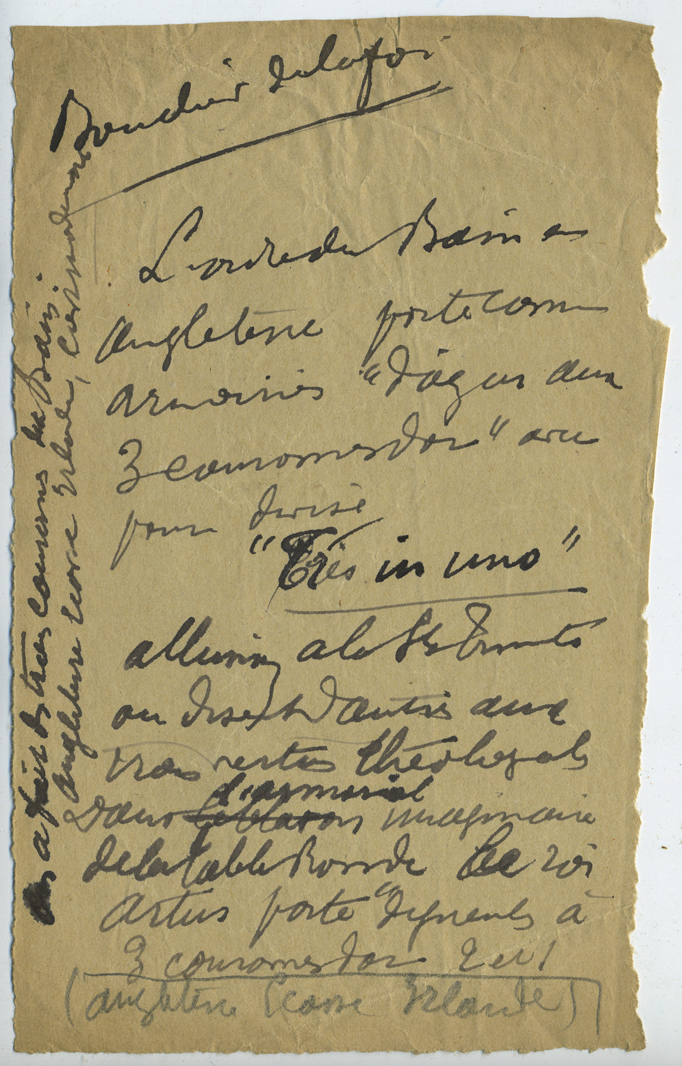 Bouclier de la foi
L'ordre du Bain en
Angleterre porte comme
armoiries "d'azur aux
3 couronnes d'or" avec
pour devise
"Tres in uno"
allusion à la Ste Trinité
ou disent d'autres aux
trois vertus théologales
Dans l'armorial imaginaire
de la Table Ronde le roi
Artus porte "de gueules à
3 couronnes d'or 2 et 1
(Angleterre Ecosse Irlande)
a fait des trois couronnes du Bain:
Angleterre Ecosse Irlande,